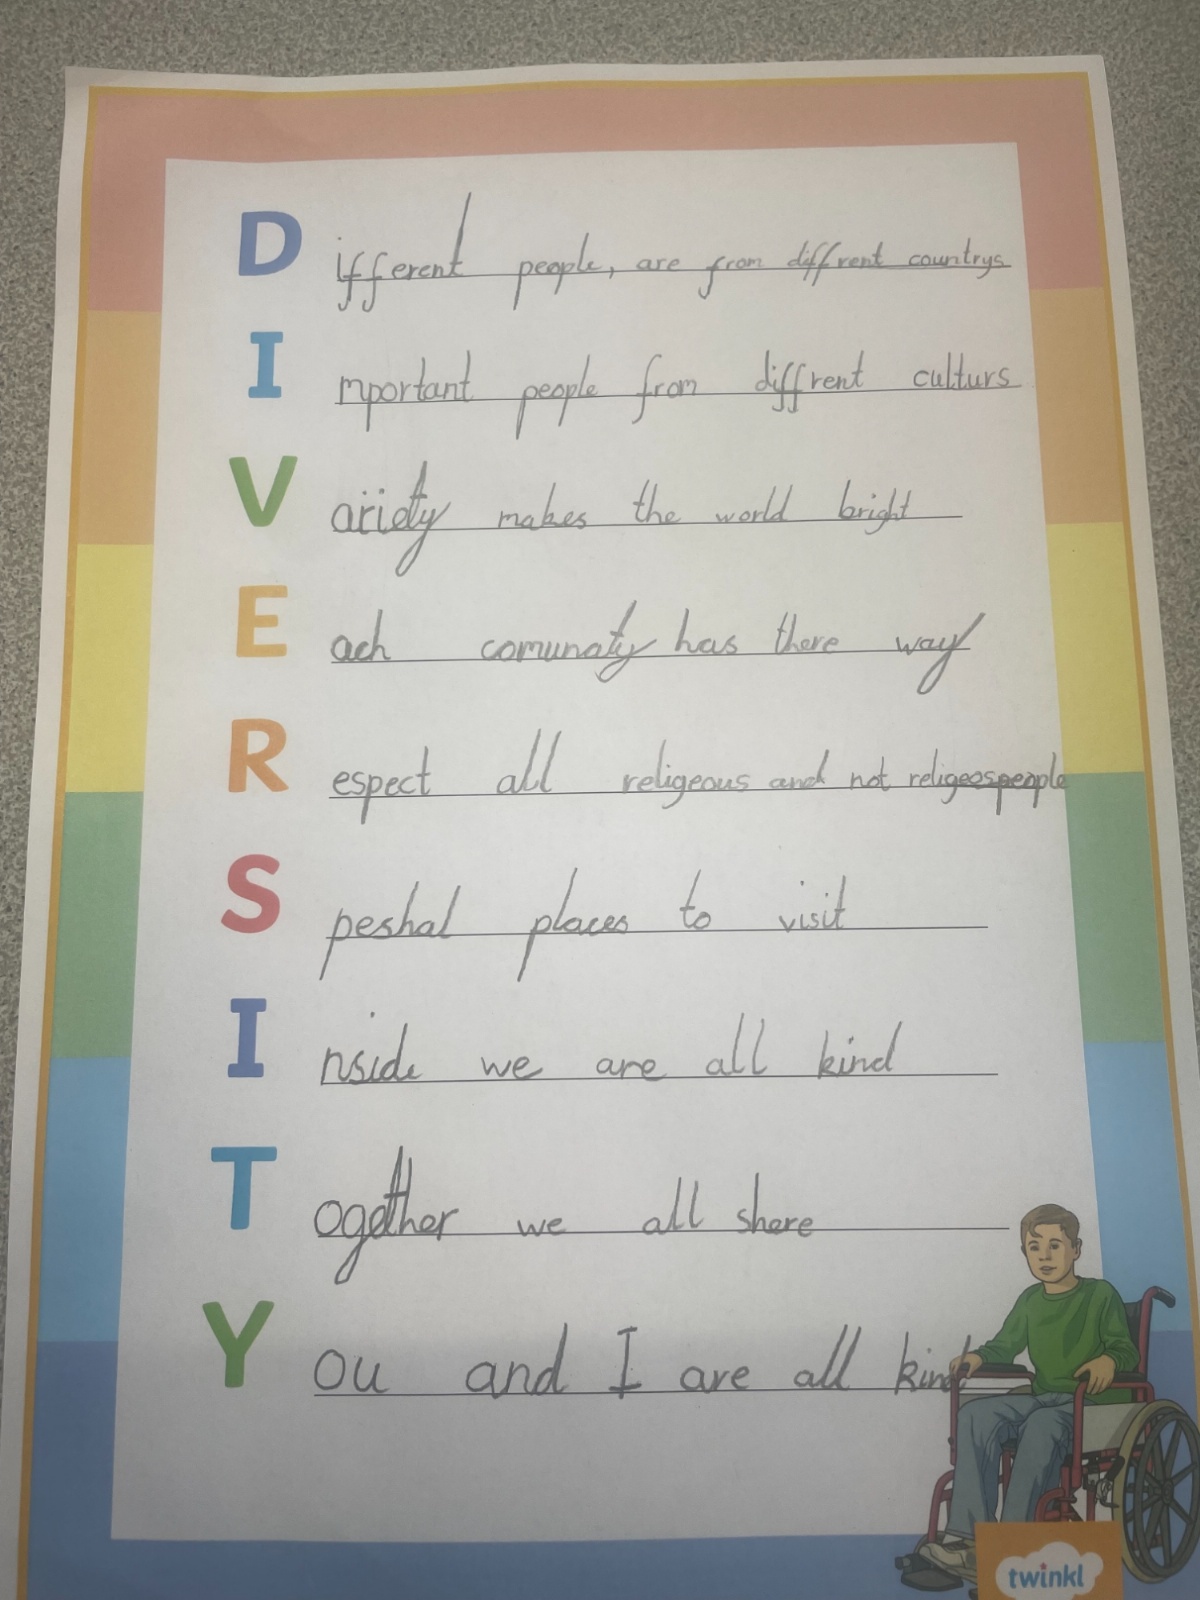 Different people, are from diffrent countrys
Important people from diffrent culturs
Variety makes the world bright
Each comunaty has there way
Respect all religeous and not religeos people
Speshal places to visit
Inside we are all kind
Together we all shere
You and I are all kind
twinkl